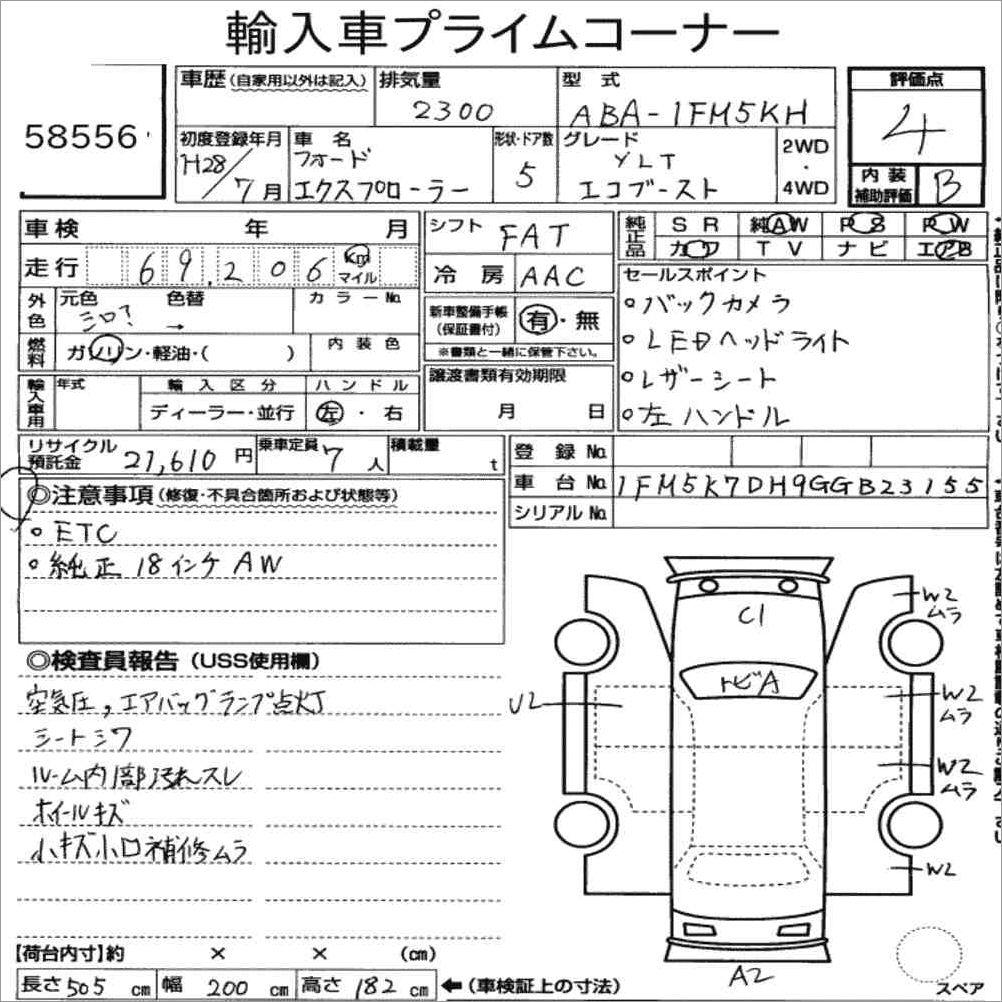 輸入車プライムコーナー
58556
車歴(自家用以外は記入)
排気量
2300
型式
ABA-1FM5KH
評価点
4
初度登録年月
H28/7月
車名
フォード
エクスプローラー
形状・ドア数
5
グレード
XLT
エコブースト
2WD
・
4WD
内装
補助評価
B
車検 年 月
シフト
FAT
純正品
SR 純AW PS PW
カワ TV ナビ エアB
走行 69,206 Km
マイル
冷房 AAC
セールスポイント
外色
元色 色替
シロ? →
カラーNo.
新車整備手帳
(保証書付)
有・無
※書類と一緒に保管下さい。
。バックカメラ
。LEDヘッドライト
。レザーシート
。左ハンドル
燃料
ガソリン・軽油・( )
内装色
輸入車用
年式
輸入区分
ディーラー・並行
ハンドル
左・右
譲渡書類有効期限
月 日
リサイクル
預託金 21,610 円
乗車定員 7 人
積載量 t
登録No.
車台No. 1FM5K7DH9GGB23155
シリアルNo.
◎注意事項(修復・不具合箇所および状態等)
。ETC
。純正18インチAW
◎検査員報告(USS使用欄)
空気圧,エアバッグランプ点灯
シートシワ
ルーム内部汚れスレ
ホイールキズ
小キズ小凹補修ムラ
C1
トビA
U2
W2
ムラ
W2
ムラ
W2
ムラ
W2
A2
スペア
【荷台内寸】約 × × (cm)
長さ505cm 幅200cm 高さ182cm ←(車検証上の寸法)